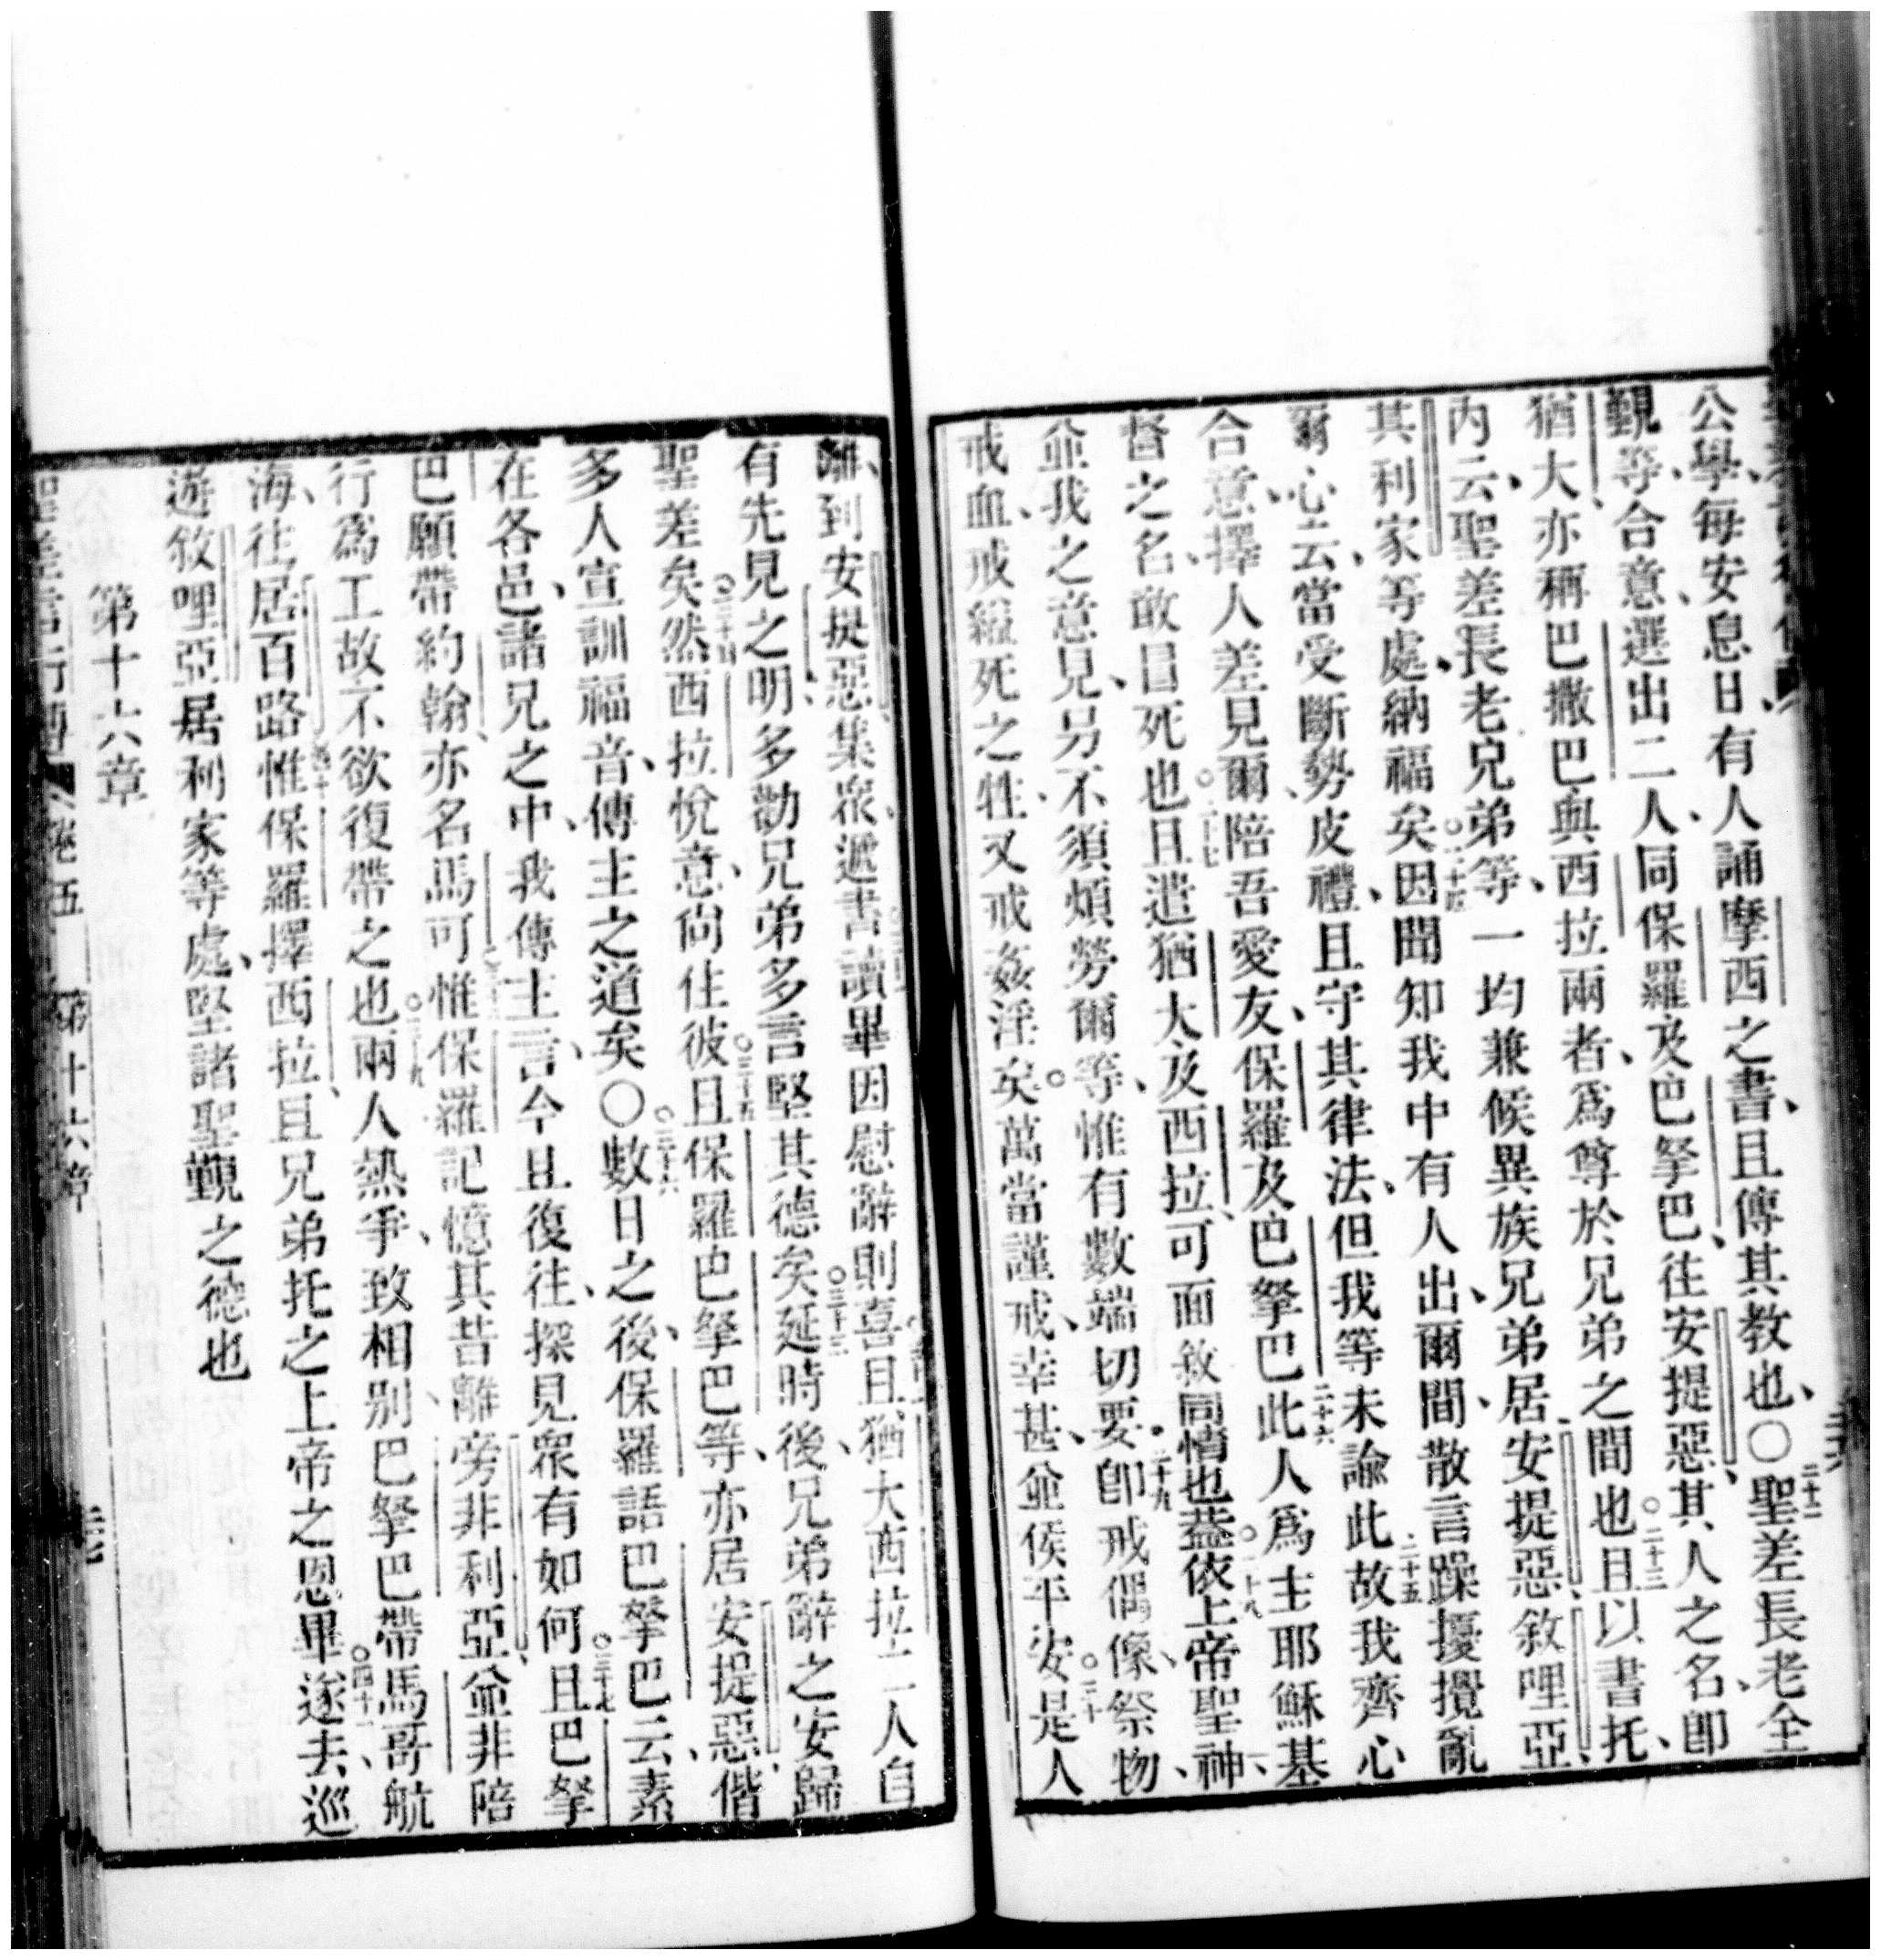 公學、每安息日、有人誦摩西之書、且傳其教也、○二十二聖差長老全
覲等、合意、選出二人、同保羅及巴拏巴、往安提惡、其人之名、即
猶大、亦稱巴撒巴與西拉兩者、為尊於兄弟之間也○二十三且以書托、
內云、聖差長老兄弟等、一均兼候異族兄弟、居安提惡、敘哩亞、
其利家等處、納福矣○二十四因聞知我中有人出、爾間、散言躁擾攪亂
爾心、云、當受斷勢皮禮、且守其律法、但我等未諭此二十五故我齊心
合意、擇人差見爾、陪吾愛友、保羅及巴拏巴二十六此人為主耶穌基
督之名、敢冒死也○二十七且遣猶大及西拉、可面敘同情也○二十八蓋依上帝聖神、
並我之意見、另不須煩勞爾等、惟有數端切要二十九即戒偶像、祭物、
戒血、戒縊死之牲、又戒姦淫矣。萬當謹戒、幸甚、並侯平安○三十是人
離、到安提惡、集眾、遞書讀畢因慰辭則喜且猶大西拉二人自
有先見之明、多勸兄弟多言堅其德矣○三十三延時後、兄弟辭之安歸
聖差矣○三十四然西拉悅意、尚住彼○三十五且保羅巴拏巴等、亦居安提惡、偕
多人宣訓福音、傳主之道矣○○三十六數日之後、保羅語巴拏巴云、素
在各邑、諸兄之中、我傳主言、今且復往、探見眾有如何○三十七且巴拏
巴願帶約翰、亦名馬可惟保羅記憶其昔離旁非利亞、並非陪
行為工故不欲復帶之也○三十九兩人熱爭、致相別巴拏巴帶馬哥航
海、往居百路○四十惟保羅擇西拉、且兄弟托之上帝之恩畢○四十一遂去、巡
遊敘哩亞居利家等處、堅諸聖覲之德也
第十六章
聖差言行傳 卷五 第十六章 三七